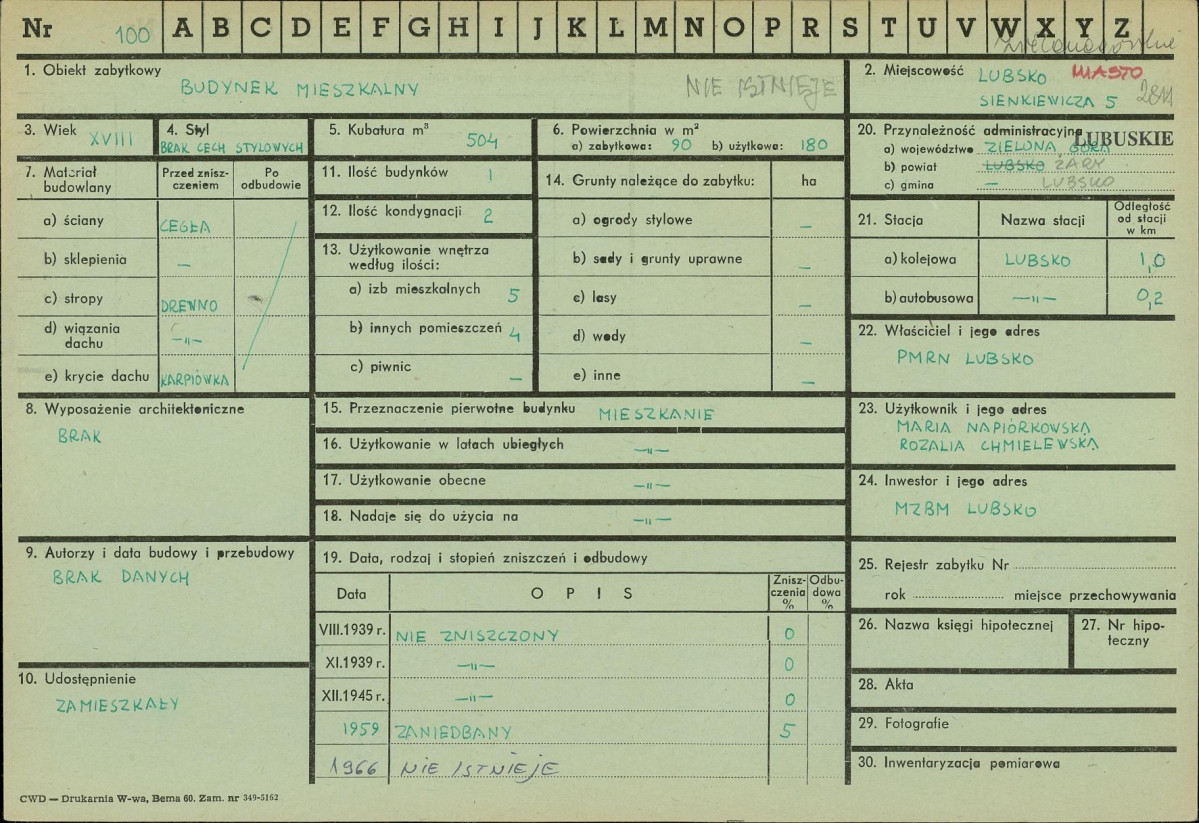 Nr 100 A B C D E F G H I J K L M N O P R S T U V W X Y Z
1. Obiekt zabytkowy
BUDYNEK MIESZKALNY NIE ISTNIEJE
2. Miejscowość LUBSKO MIASTO
SIENKIEWICZA 5 2811
3. Wiek XVIII
4. Styl
BRAK CECH STYLOWYCH
5. Kubatura m³ 504
6. Powierzchnia w m²
a) zabytkowa: 90 b) użytkowa: 180
20. Przynależność administracyjna
LUBUSKIE
a) województwo ZIELONA GÓRA
b) powiat LUBSKO ŻARY
c) gmina — LUBSKO
7. Materiał budowlany
Przed zniszczeniem
Po odbudowie
a) ściany CEGŁA
b) sklepienia —
c) stropy DREWNO
d) wiązania dachu —„—
e) krycie dachu KARPIÓWKA
11. Ilość budynków 1
12. Ilość kondygnacji 2
13. Użytkowanie wnętrza
według ilości:
a) izb mieszkalnych 5
b) innych pomieszczeń 4
c) piwnic —
14. Grunty należące do zabytku: ha
a) ogrody stylowe —
b) sady i grunty uprawne —
c) lasy —
d) wody —
e) inne —
21. Stacja Nazwa stacji Odległość od stacji w km
a) kolejowa LUBSKO 1,0
b) autobusowa —„— 0,2
22. Właściciel i jego adres
PMRN LUBSKO
8. Wyposażenie architektoniczne
BRAK
15. Przeznaczenie pierwotne budynku MIESZKANIE
16. Użytkowanie w latach ubiegłych —„—
17. Użytkowanie obecne —„—
18. Nadaje się do użycia na —„—
23. Użytkownik i jego adres
MARIA NAPIÓRKOWSKA
ROZALIA CHMIELEWSKA
24. Inwestor i jego adres
MZBM LUBSKO
9. Autorzy i data budowy i przebudowy
BRAK DANYCH
10. Udostępnienie
ZAMIESZKAŁY
19. Data, rodzaj i stopień zniszczeń i odbudowy
Data OPIS Zniszczenia % Odbudowa %
VIII.1939 r. NIE ZNISZCZONY 0
XI.1939 r. —„— 0
XII.1945 r. —„— 0
1959 ZANIEDBANY 5
1966 NIE ISTNIEJE
25. Rejestr zabytku Nr
rok miejsce przechowywania
26. Nazwa księgi hipotecznej
27. Nr hipoteczny
28. Akta
29. Fotografie
30. Inwentaryzacja pomiarowa
CWD — Drukarnia W-wa, Bema 60. Zam. nr 349-5162